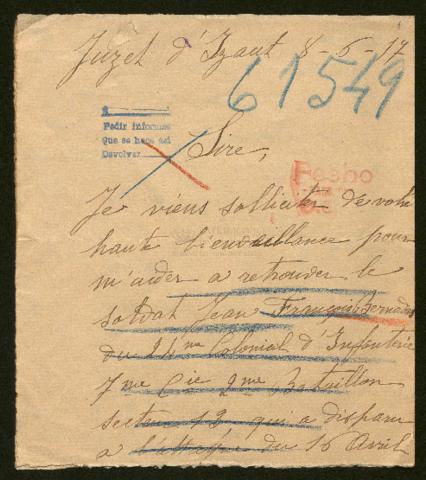 Juzet d'Izaut 8-6-17
61549
Pedir informes
Que se haga así
Devolver
Sire,
Je viens solliciter de votre
haute bienveillance pour
m'aider a retrouver le
soldat Jean François Bernadas
du 24me Colonial d'Infanterie
7me Cie 2me Bataillon
secteur 12 qui a disparu
a l'attaque du 16 Avril